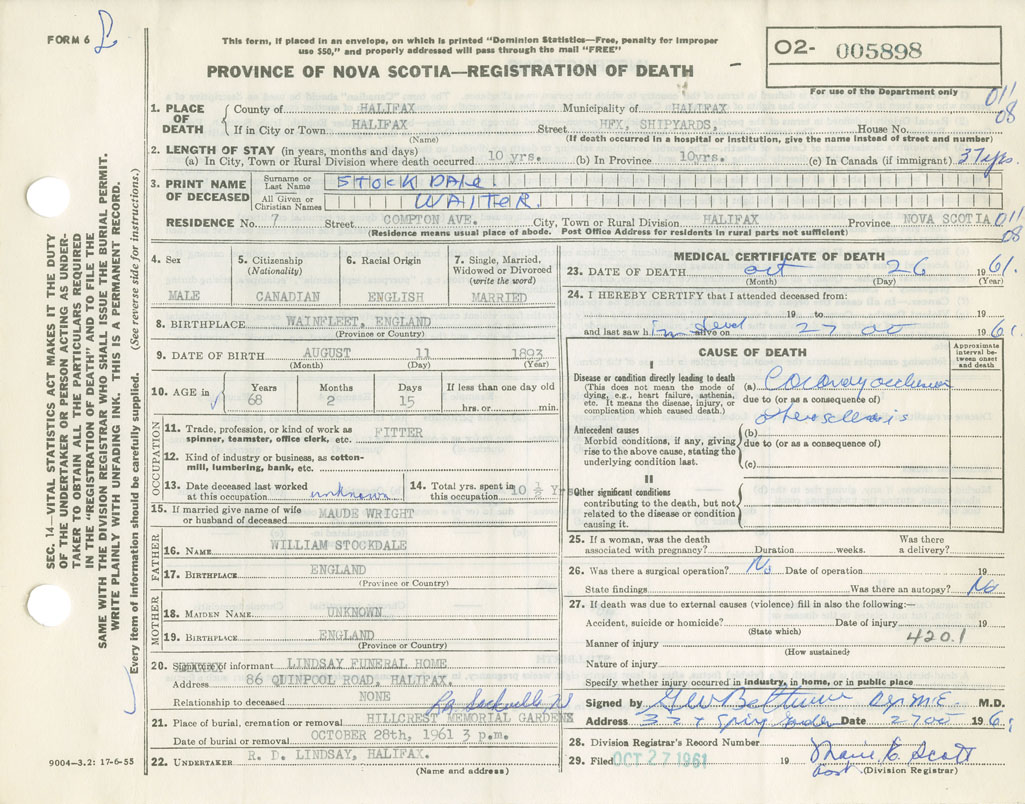 FORM 6
This form, if placed in an envelope, on which is printed "Dominion Statistics—Free, penalty for improper
use $50," and properly addressed will pass through the mail "FREE"
PROVINCE OF NOVA SCOTIA—REGISTRATION OF DEATH
O2- 005898
For use of the Department only
011
08
SEC. 14—VITAL STATISTICS ACT MAKES IT THE DUTY
OF THE UNDERTAKER OR PERSON ACTING AS UNDER-
TAKER TO OBTAIN ALL THE PARTICULARS REQUIRED
IN THE "REGISTRATION OF DEATH" AND TO FILE THE
SAME WITH THE DIVISION REGISTRAR WHO SHALL ISSUE THE BURIAL PERMIT.
WRITE PLAINLY WITH UNFADING INK. THIS IS A PERMANENT RECORD.
Every item of information should be carefully supplied. (See reverse side for instructions.)
1. PLACE OF DEATH
County of HALIFAX Municipality of HALIFAX
If in City or Town HALIFAX Street HFX, SHIPYARDS, House No.
(Name) (If death occurred in a hospital or institution, give the name instead of street and number)
2. LENGTH OF STAY (in years, months and days)
(a) In City, Town or Rural Division where death occurred 10 yrs. (b) In Province 10yrs. (c) In Canada (if immigrant) 37 yrs.
3. PRINT NAME OF DECEASED
Surname or Last Name STOCKDALE.
All Given or Christian Names WALTER.
RESIDENCE No. 7 Street COMPTON AVE. City, Town or Rural Division HALIFAX Province NOVA SCOTIA 011
08
(Residence means usual place of abode. Post Office Address for residents in rural parts not sufficient)
4. Sex
MALE
5. Citizenship
(Nationality)
CANADIAN
6. Racial Origin
ENGLISH
7. Single, Married,
Widowed or Divorced
(write the word)
MARRIED
8. BIRTHPLACE WAINFLEET, ENGLAND
(Province or Country)
9. DATE OF BIRTH AUGUST 11 1893
(Month) (Day) (Year)
10. AGE in Years Months Days If less than one day old
68 2 15 hrs. or min.
OCCUPATION
11. Trade, profession, or kind of work as
spinner, teamster, office clerk, etc. FITTER
12. Kind of industry or business, as cotton-
mill, lumbering, bank, etc.
13. Date deceased last worked
at this occupation unknown
14. Total yrs. spent in
this occupation 10 ½ Yrs
15. If married give name of wife
or husband of deceased MAUDE WRIGHT
FATHER
16. NAME WILLIAM STOCKDALE
17. BIRTHPLACE ENGLAND
(Province or Country)
MOTHER
18. MAIDEN NAME UNKNOWN
19. BIRTHPLACE ENGLAND
(Province or Country)
20. Signature of informant LINDSAY FUNERAL HOME
Address 86 QUINPOOL ROAD, HALIFAX.
Relationship to deceased NONE
Sackville NS
21. Place of burial, cremation or removal HILLCREST MEMORIAL GARDENS
Date of burial or removal OCTOBER 28th, 1961 3 p.m.
22. UNDERTAKER R. D. LINDSAY, HALIFAX.
(Name and address)
9004—3.2: 17-6-55
MEDICAL CERTIFICATE OF DEATH
23. DATE OF DEATH Oct 26 1961.
(Month) (Day) (Year)
24. I HEREBY CERTIFY that I attended deceased from:
19 to 19
and last saw him alive on dead 27 Oct 1961.
CAUSE OF DEATH
Approximate
interval be-
tween onset
and death
I
Disease or condition directly leading to death
(This does not mean the mode of
dying, e.g., heart failure, asthenia,
etc. It means the disease, injury, or
complication which caused death.)
(a) Coronary occlusion
due to (or as a consequence of)
Antecedent causes
Morbid conditions, if any, giving
rise to the above cause, stating the
underlying condition last.
(b)
due to (or as a consequence of)
(c)
II
Other significant conditions
contributing to the death, but not
related to the disease or condition
causing it.
25. If a woman, was the death
associated with pregnancy? Duration weeks. Was there
a delivery?
26. Was there a surgical operation? No Date of operation 19
State findings Was there an autopsy? No
27. If death was due to external causes (violence) fill in also the following:—
Accident, suicide or homicide? Date of injury 19
(State which)
420.1
Manner of injury
(How sustained)
Nature of injury
Specify whether injury occurred in industry, in home, or in public place
Signed by M.D.
Address 327 Spring Garden Date 27 Oct 1961
28. Division Registrar's Record Number
29. Filed OCT 27 1961 19 Marie E. Scott
(Division Registrar)